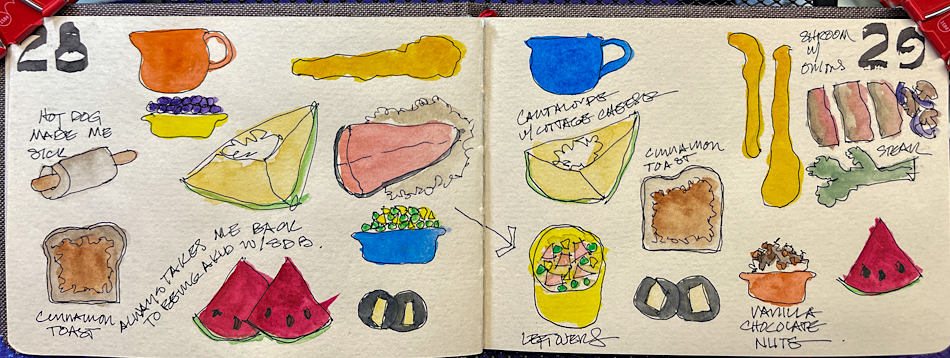 28
HOT DOG
MADE ME
SICK
CINNAMON
TOAST
ALWAYS TAKES ME BACK
TO BEING A KID W/ SDB.
CANTALOUPE
W/ COTTAGE CHEESE
CINNAMON
TOAST
LEFTOVERS
SHROOM
W/
ONIONS
29
STEAK
VANILLA
CHOCOLATE
NUTS